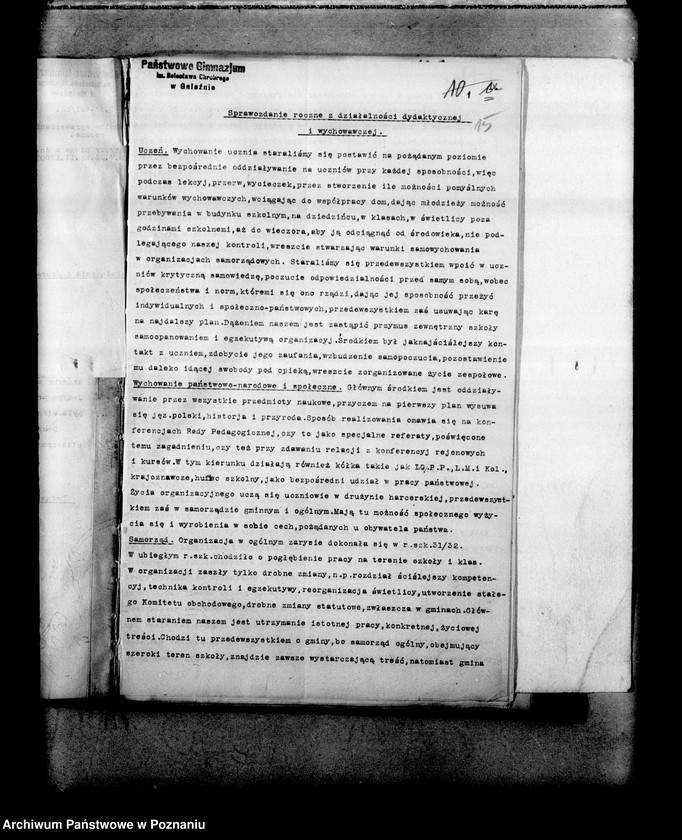 Państwowe Gimnazjum
im. Bolesława Chrobrego
w Gnieźnie
10.
15
Sprawozdanie roczne z działalności dydaktycznej
i wychowawczej.
Uczeń. Wychowanie ucznia staraliśmy się postawić na pożądanym poziomie
przez bezpośrednie oddziaływanie na uczniów przy każdej sposobności,więc
podczas lekcyj,przerw,wycieczek,przez stworzenie ile możności pomyślnych
warunków wychowawczych,wciągając do współpracy dom,dając młodzieży możność
przebywania w budynku szkolnym,na dziedzińcu,w klasach,w świetlicy poza
godzinami szkolnemi,aż do wieczora,aby ją odciągnąć od środowiska,nie pod-
legającego naszej kontroli,wreszcie stwarzając warunki samowychowania
w organizacjach samorządowych. Staraliśmy się przedewszystkiem wpoić w ucz-
niów krytyczną samowiedzę,poczucie odpowiedzialności przed samym sobą,wobec
społeczeństwa i norm,któremi się ono rządzi,dając jej sposobność przeżyć
indywidualnych i społeczno-państwowych,przedewszystkiem zaś usuwając karę
na najdalszy plan.Dążeniem naszem jest zastąpić przymus zewnętrzny szkoły
samoopanowaniem i egzekutywą organizacyj.Środkiem był jaknajściślejszy kon-
takt z uczniem,zdobycie jego zaufania,wzbudzenie samopoczucia,pozostawienie
mu daleko idącej swobody pod opieką,wreszcie zorganizowane życie zespołowe.
Wychowanie państwowo-narodowe i społeczne. Głównym środkiem jest oddziały-
wanie przez wszystkie przedmioty naukowe,przyczem na pierwszy plan wysuwa
się jęz.polski,historja i przyroda.Sposób realizowania omawia się na kon-
ferencjach Rady Pedagogicznej,czy to jako specjalne referaty,poświęcone
temu zagadnieniu,czy też przy zdawaniu relacji z konferencyj rejonowych
i kursów.W tym kierunku działają również kółka takie jak LO.P.P.,L.M.i Kol.,
krajoznawcze,hufiec szkolny,jako bezpośredni udział w pracy państwowej.
Życia organizacyjnego uczą się uczniowie w drużynie harcerskiej,przedewszyst-
kiem zaś w samorządzie gminnym i ogólnym.Mają tu możność społecznego wyży-
cia się i wyrobienia w sobie cech,pożądanych u obywatela państwa.
Samorząd. Organizacja w ogólnym zarysie dokonała się w r.szk.31/32.
W ubiegłym r.szk.chodziło o pogłębienie pracy na terenie szkoły i klas.
W organizacji zaszły tylko drobne zmiany,n.p.rozdział ściślejszy kompeten-
cyj,technika kontroli i egzekutywy,reorganizacja świetlicy,utworzenie stałe-
go Komitetu obchodowego,drobne zmiany statutowe,zwłaszcza w gminach.Głów-
nem staraniem naszem jest utrzymanie istotnej pracy,konkretnej,życiowej
treści.Chodzi tu przedewszystkiem o gminy,bo samorząd ogólny,obejmujący
szeroki teren szkoły,znajdzie zawsze wystarczającą treść,natomiast gmina
Archiwum Państwowe w Poznaniu